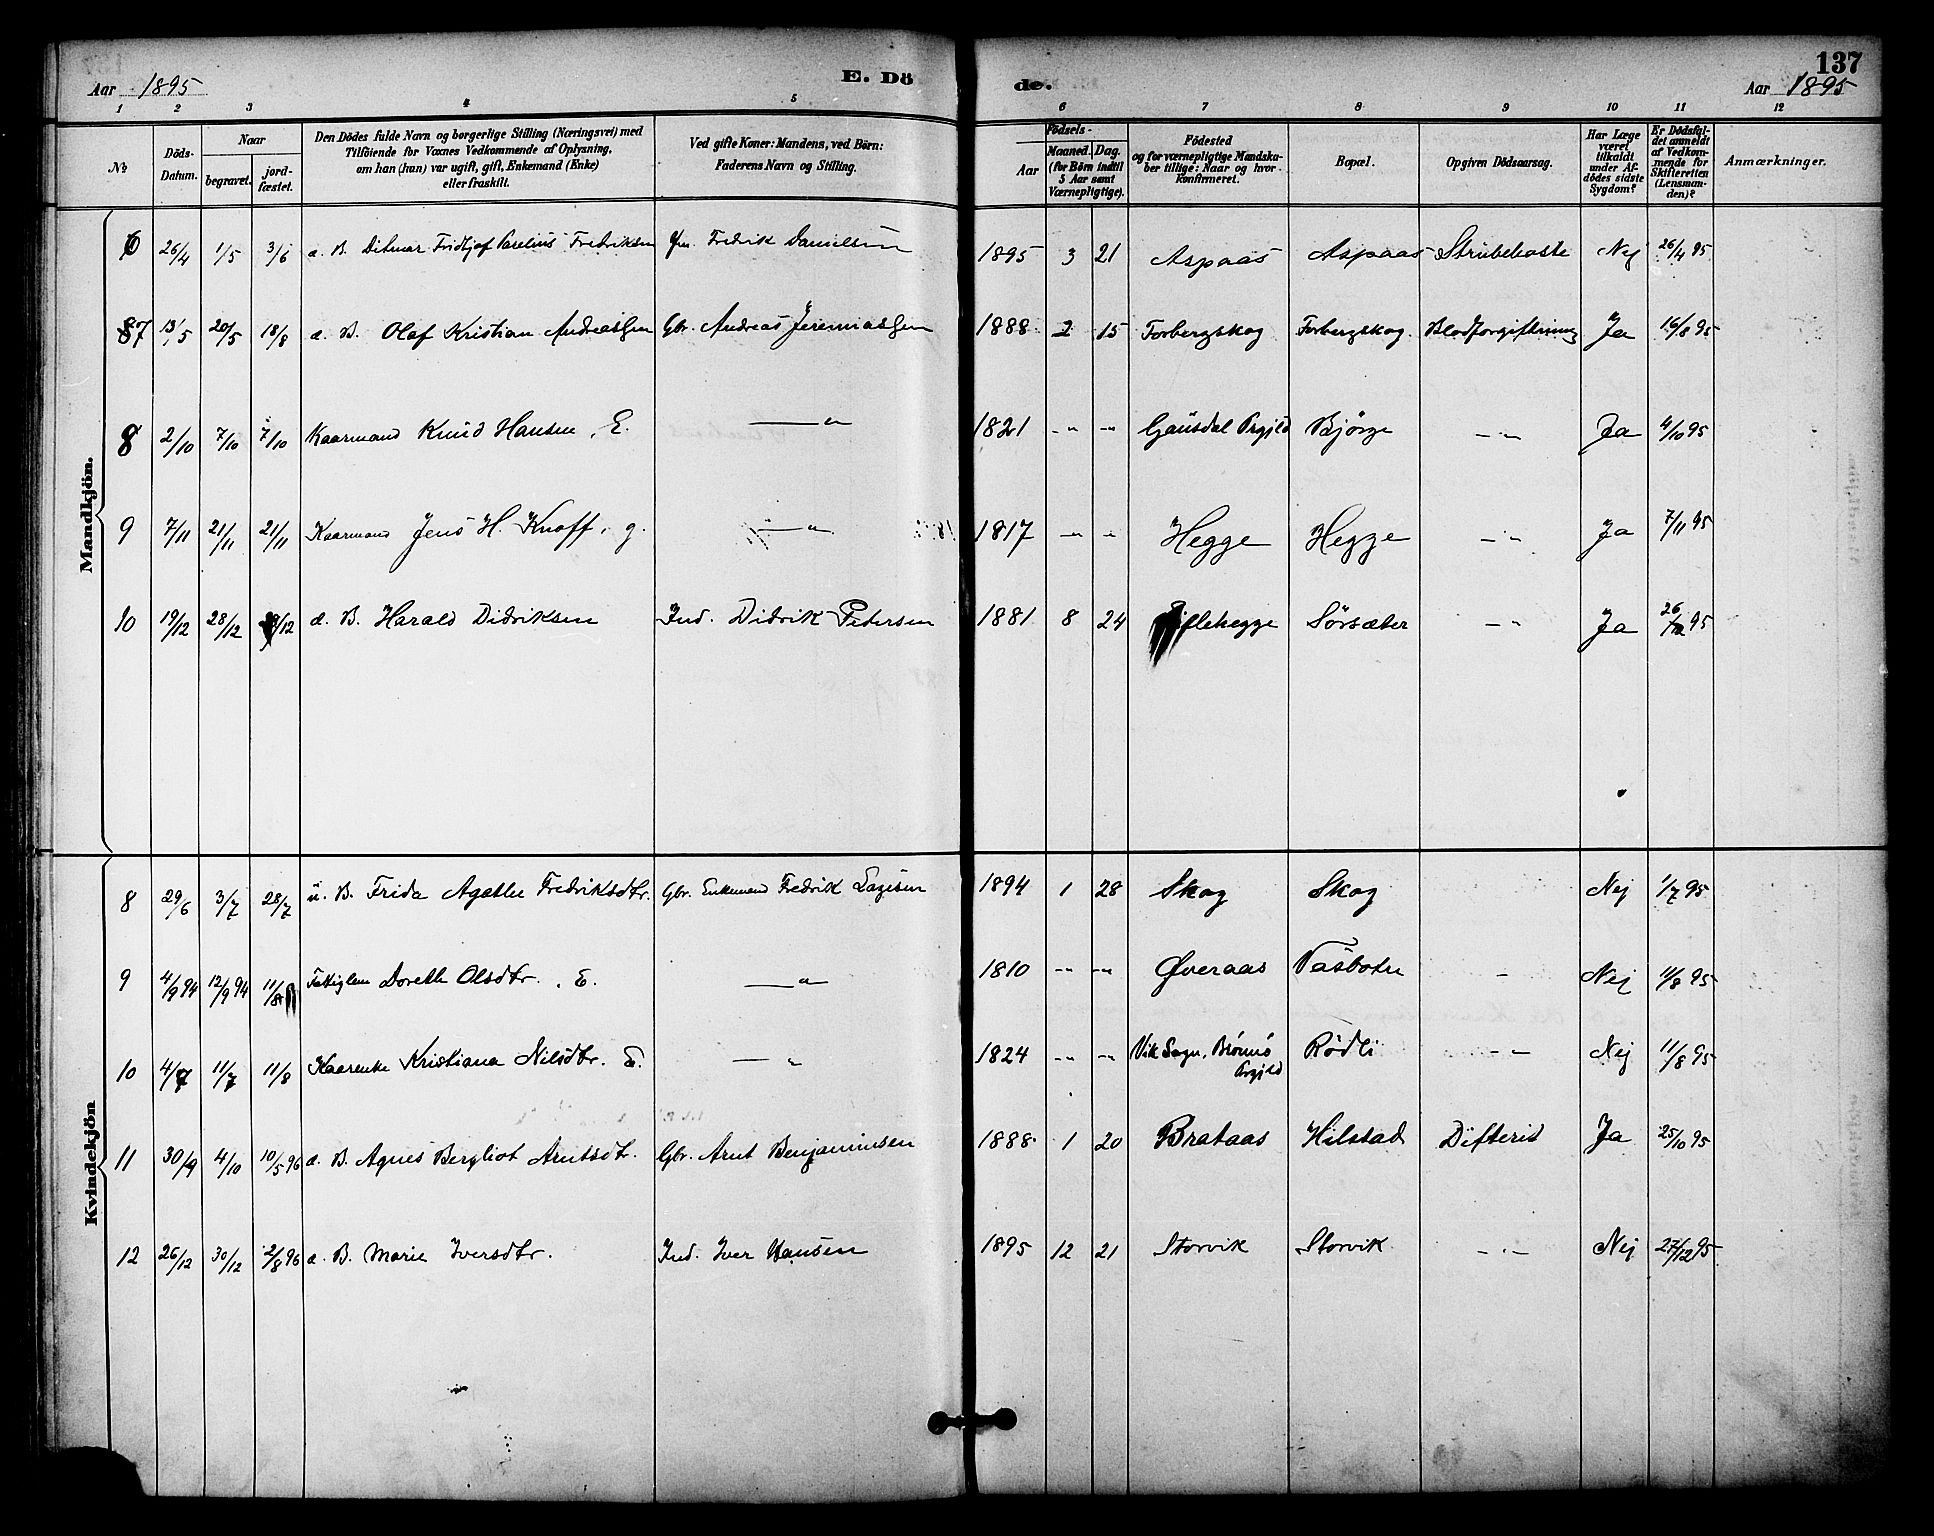 137
Aar 1895 E. Dö de. Aar 1895
1 2 3 4 5 6 7 8 9 10 11 12
№ Döds-Datum. Naar begravet. jord-fæstet. Den Dödes fulde Navn og borgerlige Stilling (Næringsvei) med Tilföiende for Voxnes Vedkommende af Oplysning, om han (hun) var ugift, gift, Enkemand (Enke) eller fraskilt. Ved gifte Koner: Mandens, ved Börn: Faderens Navn og Stilling. Födsels- Aar Maaned. Dag. (for Børn indtil 5 Aar samt Værnepligtige). Födested og for værnepligtige Mandska-ber tillige: Naar og hvor Konfirmeret. Bopæl. Opgiven Dödsaarsag. Har Læge været tilkaldt under Af-dödes sidste Sygdom? Er Dödsfal-det anmeldt af Vedkom-mende for Skifteretten (Lensman-den)? Anmærkninger.
Mandkjön.
6 26/4 1/5 3/6 æ. B. Ditmar Fridtjof Parelius Fredriksen Fredrik Danielsen 1895 3 21 Aspaas Aspaas Strubehoste Nej 26/4 95
7 13/5 20/5 18/8 æ. B. Olaf Kristian Andreassen Gbr. Andreas Jeremiassen 1888 2 15 Forbergskog Forbergskog Blodforgiftning Ja 16/8 95
8 2/10 7/10 7/10 Kaarmand Knud Hansen, E. — " 1821 - " - - " - Gausdal Prgjld Bjørge - " - Ja 4/10 95
9 7/11 21/11 21/11 Kaarmand Jens H. Knoff, g. — " 1817 - " - - " - Hegge Hegge - " - Ja 7/11 95
10 19/12 28/12 /12 æ. B. Harald Didriksen Ind. Didrik Petersen 1881 8 24 Sørsæter - " - Ja 26/12 95
Kvindekjön
8 29/6 3/7 28/7 u. B. Frida Agathe Fredriksdtr. Gbr. Enkemand Fredrik Lagesen 1894 1 28 Skog Skog Nej 1/7 95
9 4/9 94 12/9 94 11/8 Fattiglem Dorethe Olsdtr., E. — " 1810 - " - - " - Øveraas Vasbotn - Nej 11/8 95
10 4/7 11/7 11/8 Kaarenke Kristiana Nilsdtr. E. — " 1824 - " - - " - Vik Sogn, Brønnø Prgjld Rødli - " - Nej 11/8 95
11 30/9 4/10 10/5 96 æ. B. Agnes Bergliot Arntsdt. Gbr. Arnt Benjaminsen 1888 1 20 Brataas Hilstad Difterit Ja 25/10 95
12 26/12 30/12 2/8 96 æ. B. Marie Iversdtr. Ind. Iver Hansen 1895 12 21 Storvik Storvik - " - Nej 27/12 95